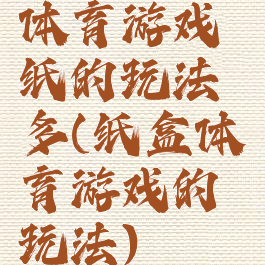 体育游戏
纸的玩法
多(纸盒体
育游戏的
玩法)